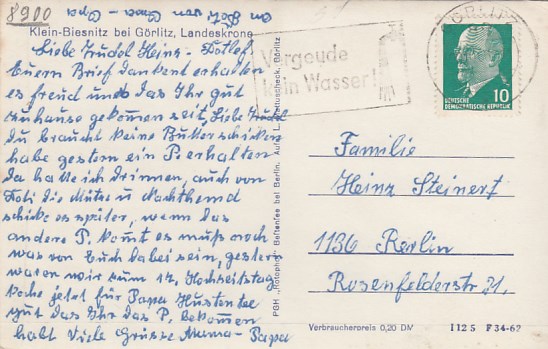 8900
an Toti von Oma - Opa
Klein-Biesnitz bei Görlitz, Landeskrone
Liebe Trudel Heinz - Detlef
Euern Brief dankent erhalten
es freud uns das Ihr gut
zuhause gekommen seit, Liebe Trudel
du brauchst keine Butter schicken
habe gestern ein P. erhalten
da hatte ich drinnen, auch von
Toti die Mütze u Nachthemd
schicke es später, wenn das
andere P. komt es muß noch
was von Euch dabei sein, gestern
waren wir zum 14. Hochzeitstag
koche jetzt für Papa Hustentee
gut das Ihr das P. bekommen
habt Viele Grüsse Mama - Papa
Vergeude
kein Wasser!
GÖRLITZ
DEUTSCHE
DEMOKRATISCHE REPUBLIK
10
PGH „Rotophot" Bestensee bei Berlin. Aufn. L. Görlitz
Familie
Heinz Steinert
1136 Berlin
Rosenfelderstr. 21.
Verbraucherpreis 0,20 DM
I 12 S F 34-62